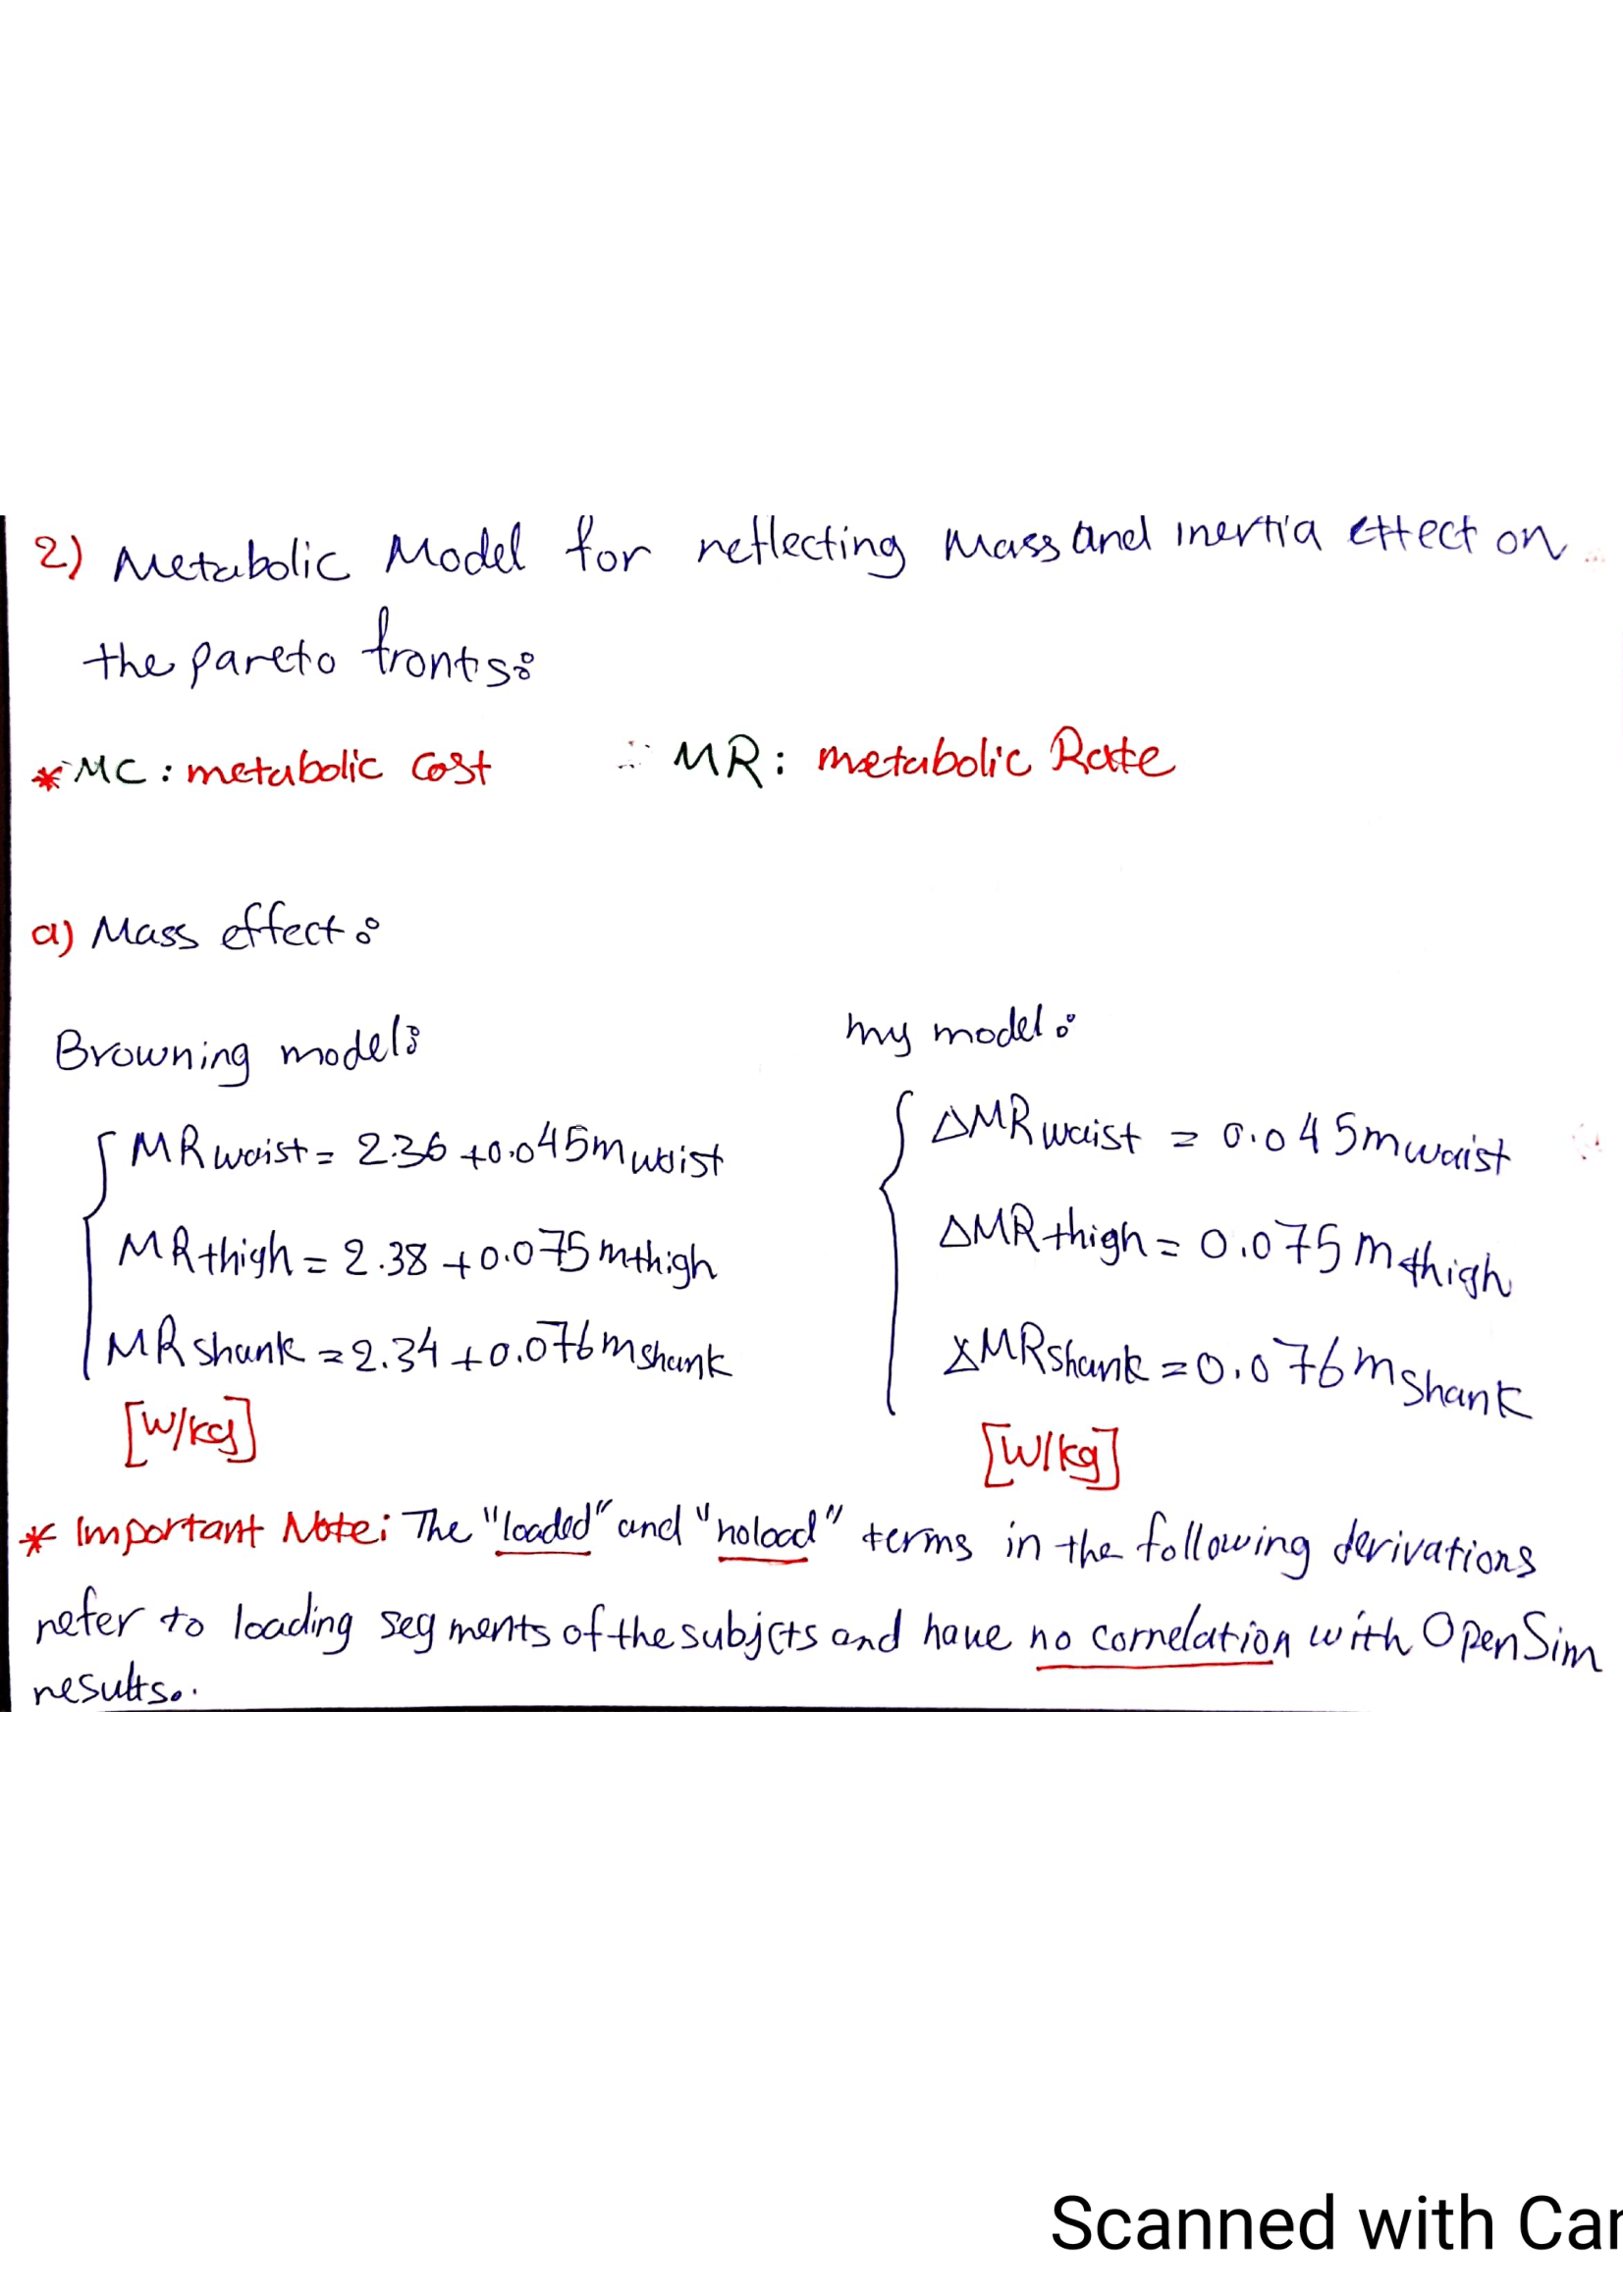 2) Metabolic Model for reflecting Mass and inertia effect on
the pareto fronts:
*MC: metabolic Cost ∴ MR: metabolic Rate
a) Mass effect:
Browning model: my model:
MRwaist = 2.36 + 0.045 mwaist ΔMRwaist = 0.045 mwaist
MRthigh = 2.38 + 0.075 mthigh ΔMRthigh = 0.075 mthigh
MRshank = 2.34 + 0.076 mshank ΔMRshank = 0.076 mshank
[W/kg] [W/kg]
* Important Note: The "loaded" and "noload" terms in the following derivations
refer to loading segments of the subjcts and have no correlation with OpenSim
results.
Scanned with Car